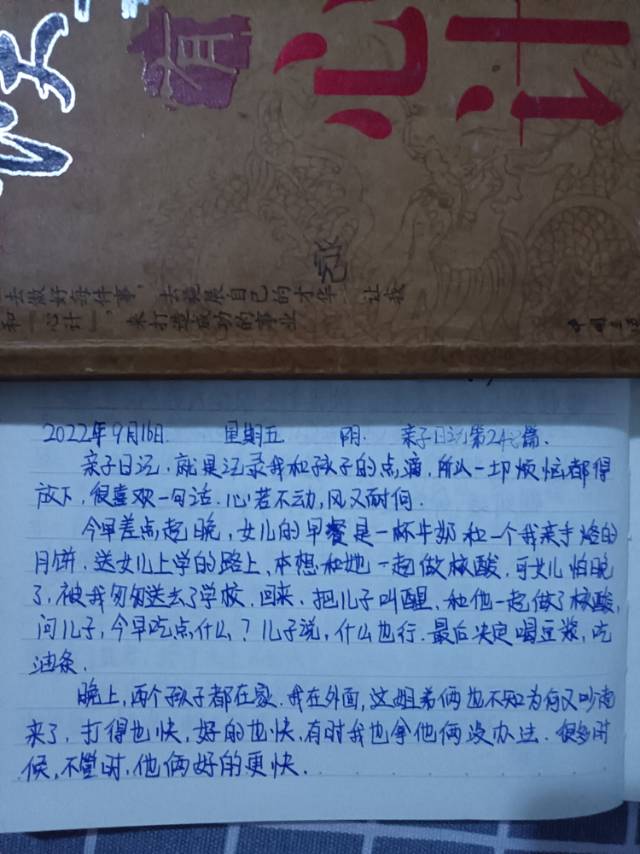 有
心
计
去做好每件事，去施展自己的才华 让我
和「心计」，来打造成功的事业
2022年9月16日. 星期五 阴. 亲子日记第24篇.
亲子日记.就是记录我和孩子的点滴,所以一切烦恼都得
放下,很喜欢一句话.心若不动,风又耐何.
今早差点起晚,女儿的早餐是一杯牛奶和一个我亲手烙的
月饼.送女儿上学的路上,本想和她一起做核酸,可女儿怕晚
了,被我匆匆送去了学校.回来.把儿子叫醒.和他一起做了核酸,
问儿子,今早吃点什么?儿子说,什么也行.最后决定喝豆浆,吃
油条.
晚上,两个孩子都在家.我在外面,这姐弟俩也不知为何又吵闹
来了.打得也快,好的也快.有时我也拿他俩没办法.很多时
候,不管时.他俩好的更快.